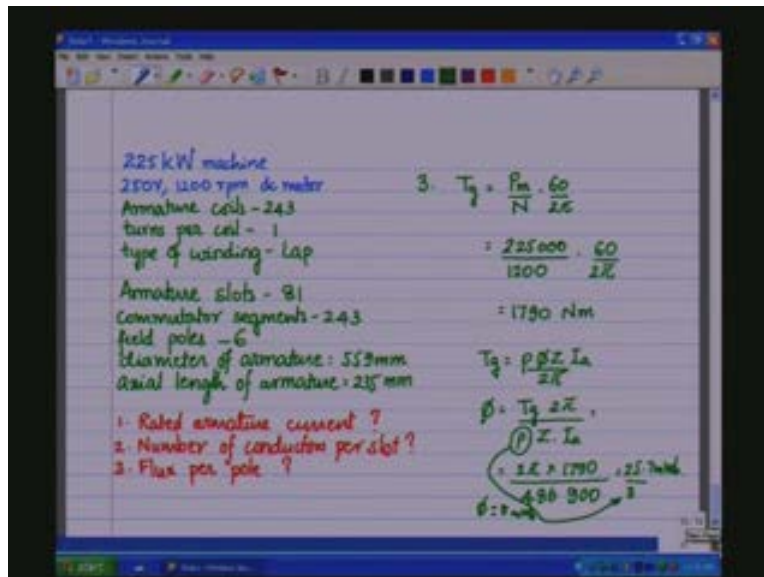 225kW machine
250V, 1200 rpm dc motor
Armature coils - 243
turns per coil - 1
type of winding - Lap
Armature slots - 81
commutator segments - 243
field poles - 6
diameter of armature = 559mm
axial length of armature = 235 mm
1. Rated armature current ?
2. Number of conductors per slot ?
3. Flux per pole ?
3. Tg = Pm/N . 60/2π
= 225000/1200 . 60/2π
= 1790 Nm
Tg = pØZ Ia/2π
Ø = Tg 2π/p Z. Ia
= 2π × 1790/486 900 = 25.7mwb/3